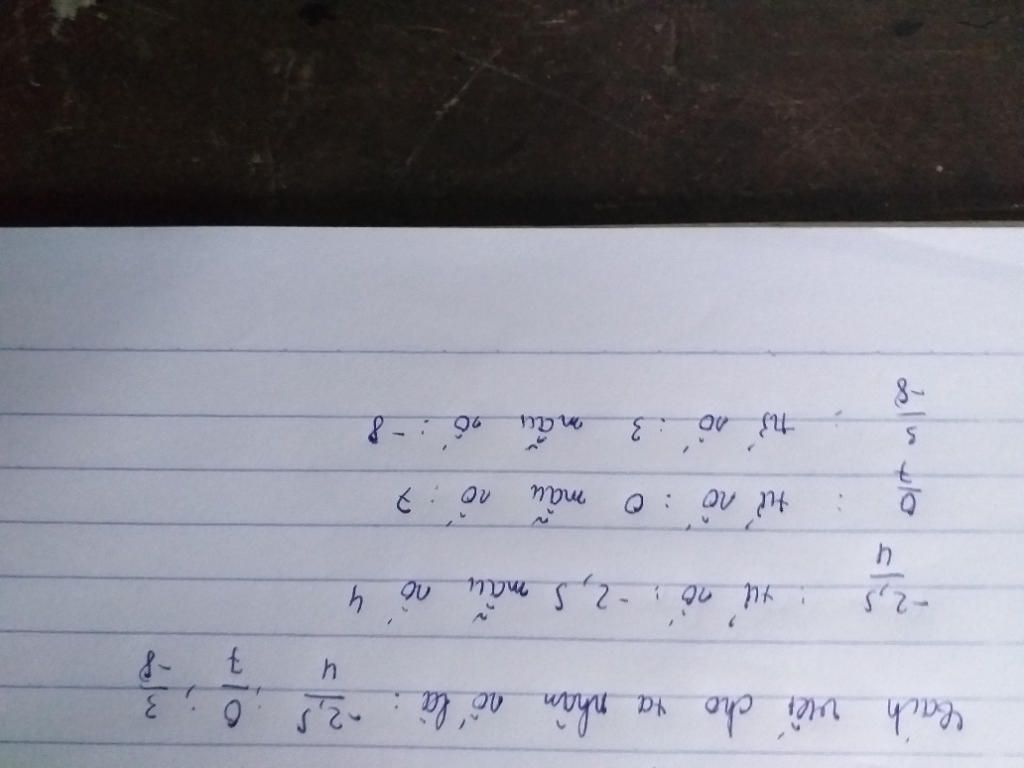 Cách viết cho ta phân số là : -2,5/4 ; 0/7 ; 3/-8
-2,5/4 : tử số : -2,5 mẫu số 4
0/7 : tử số : 0 mẫu số : 7
3/-8 : tử số : 3 mẫu số : -8